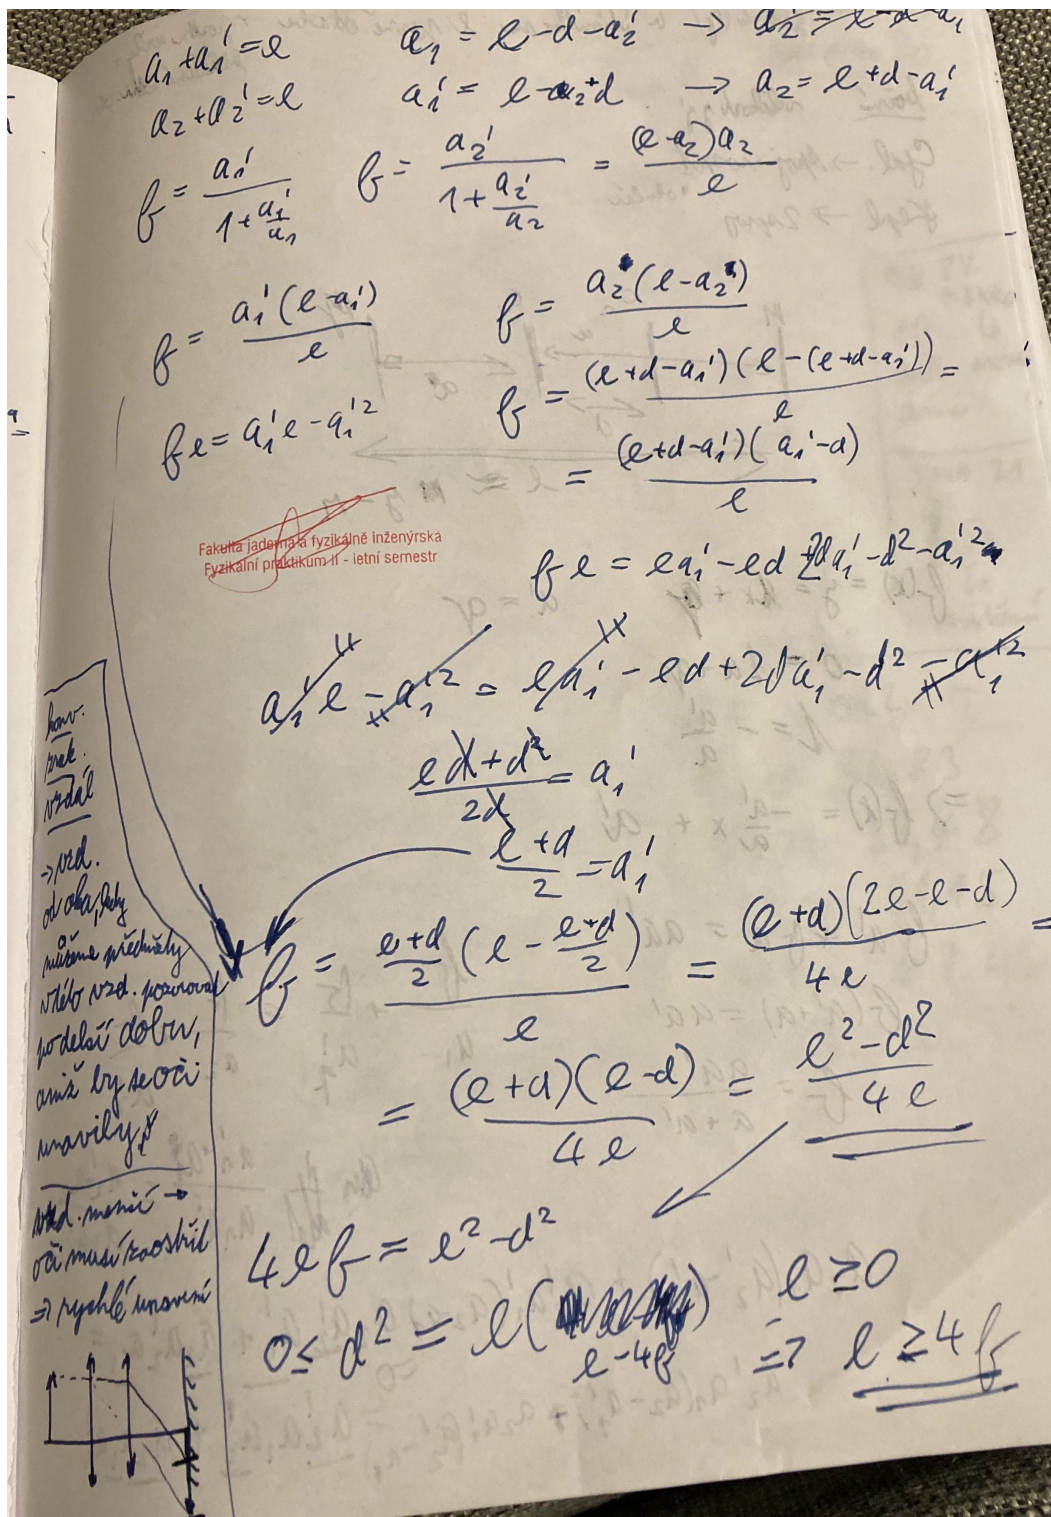 a₁ + a₁' = e
a₁ = e - d - a₂' → a₂' = e - d - a₁
a₂ + a₂' = e
a₁' = e - a₂ + d → a₂ = e + d - a₁'
f = a₁' / (1 + a₁'/a₁)
f = a₂' / (1 + a₂'/a₂) = (e - a₂)a₂ / e
f = a₁'(e - a₁') / e
f = a₂(e - a₂) / e
fe = a₁'e - a₁'²
f = (e + d - a₁')(e - (e + d - a₁')) / e =
= (e + d - a₁')(a₁' - d) / e
Fakulta jaderná a fyzikálně inženýrská
Fyzikální praktikum II - letní semestr
fe = ea₁' - ed + 2da₁' - d² - a₁'²
a₁'e - a₁'² = ea₁' - ed + 2da₁' - d² - a₁'²
(ed + d²) / 2d = a₁'
(e + d) / 2 = a₁'
f = (e+d)/2 (e - (e+d)/2) / e = (e + d)(2e - e - d) / 4e =
= (e + d)(e - d) / 4e = (e² - d²) / 4e
4ef = e² - d²
e ≥ 0
0 ≤ d² = e(e - 4f) ⇒ e ≥ 4f
konv.
zrak.
vzdál
→ vzd.
od oka, kdy
můžeme předměty
v této vzd. pozorovat
po delší dobu,
aniž by se oči
unavily
vzd. menší →
oči musí zaostřit
⇒ rychlé unavení